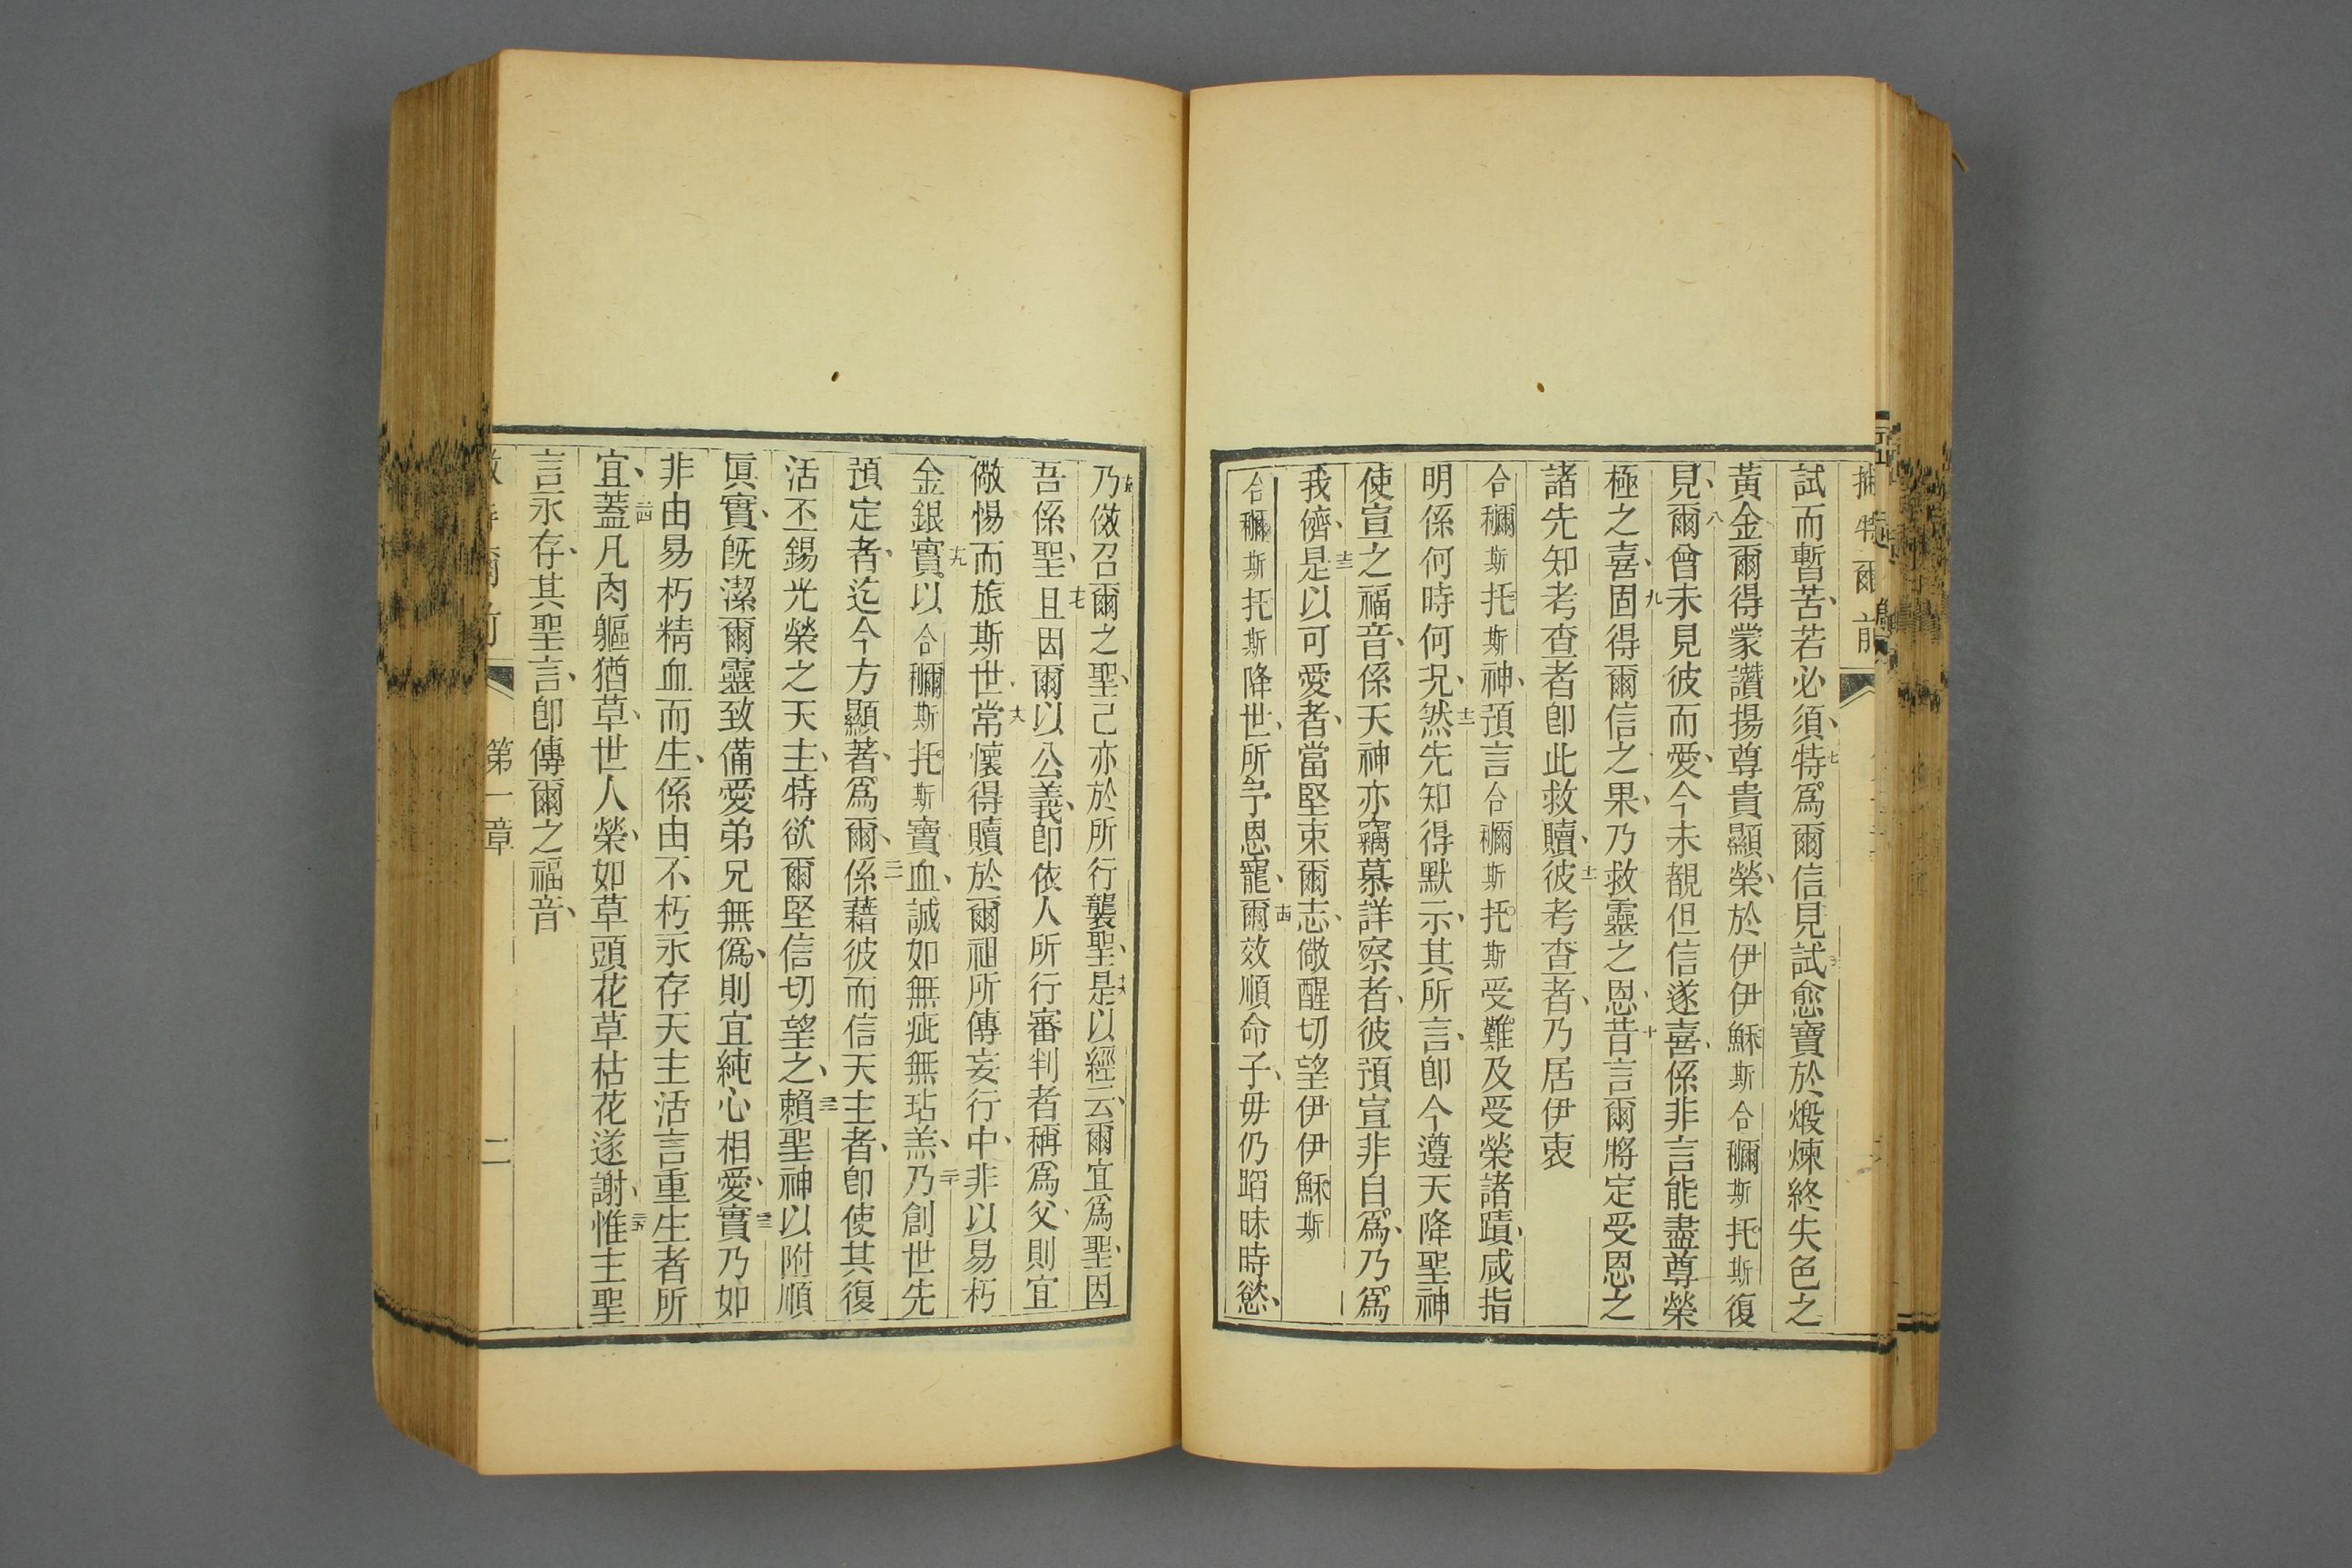 試而暫苦、若必須、七特爲爾信見試愈寶於煅煉終失色之
黃金爾得蒙讚揚尊貴顯榮、於伊伊穌斯合穪斯托斯復
見、八爾曾未見彼而愛、今未覩但信遂喜、係非言能盡尊榮
極之喜、九固得爾信之果、乃救靈之恩、十昔言爾將定受恩之
諸先知考查者卽此救贖、十一彼考查者、乃居伊衷
合穪斯托斯神、預言合穪斯托斯受難及受榮諸蹟、咸指
明係何時何况、十二然先知得默示、其所言、卽今遵天降聖神
使宣之福音、係天神亦竊慕詳察者、彼預宣非自爲、乃爲
我儕、十三是以可愛者、當堅束爾志、儆醒切望伊伊穌斯
合穪斯托斯降世、所予恩寵、十四爾效順命子、毋仍蹈昧時慾、
十五乃傚召爾之聖、己亦於所行襲聖、十六是以經云、爾宜爲聖、因
吾係聖、十七且因爾以公義、卽依人所行審判者稱爲父、則宜
儆惕而旅斯世、十八常懷得贖於爾祖所傳妄行中、非以易朽
金銀、十九實以合穪斯托斯寶血、誠如無疵無玷羔、二十乃創世先
預定者、迄今方顯著、爲爾、二一係藉彼而信天主者、卽使其復
活丕錫光榮之天主、特欲爾堅信切望之、二二賴聖神以附順
眞實、旣潔爾靈致備愛弟兄無僞、則宜純心相愛、二三實乃如
非由易朽精血而生、係由不朽永存天主活言重生者所
宜、二四蓋凡肉軀猶草、世人榮、如草頭花草枯花遂謝、二五惟主聖
言永存、其聖言、卽傳爾之福音、
第一章
二